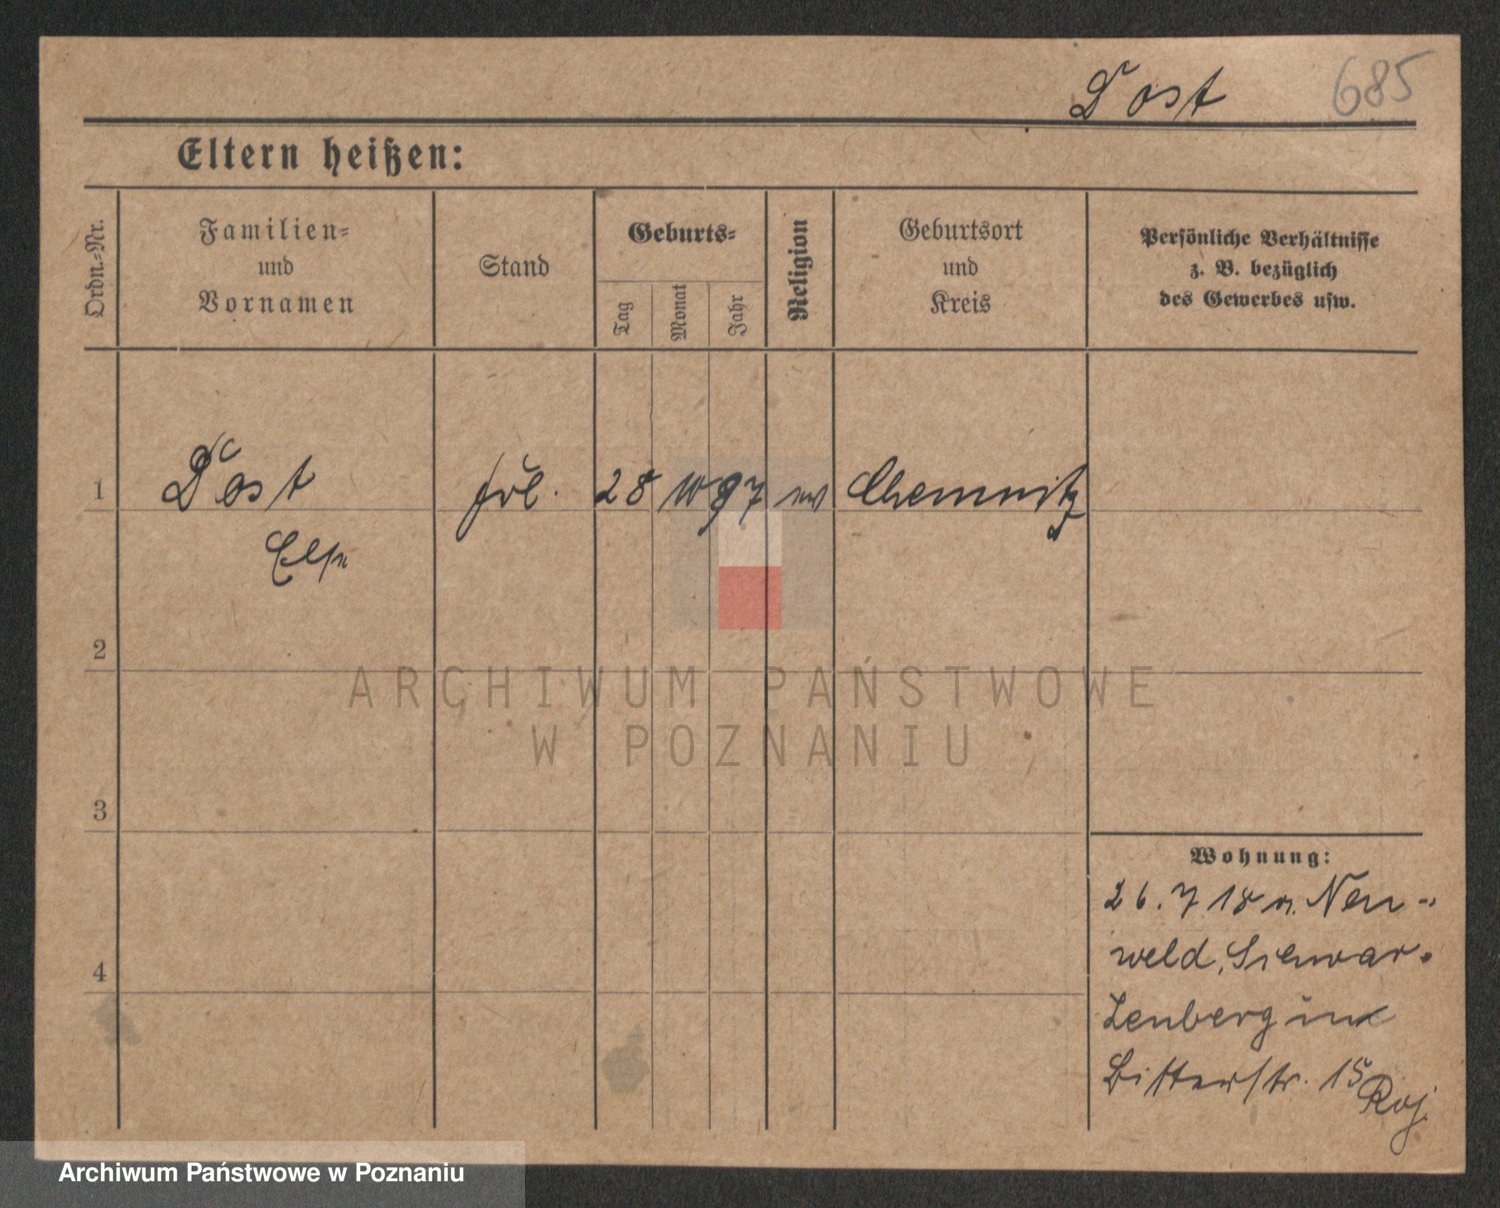 Dost 685
Eltern heißen:
Ordn.=Nr.
Familien=
und
Vornamen
Stand
Geburts=
Tag
Monat
Jahr
Religion
Geburtsort
und
Kreis
Persönliche Verhältnisse
z. B. bezüglich
des Gewerbes usw.
1 Dost frl. 28 10 97 Chemnitz
Else
2
3
4
ARCHIWUM PAŃSTWOWE
W POZNANIU
Wohnung:
26. 7 18 n. Neu-
weld, Schwar-
zenberg
Ritterstr. 15
Archiwum Państwowe w Poznaniu